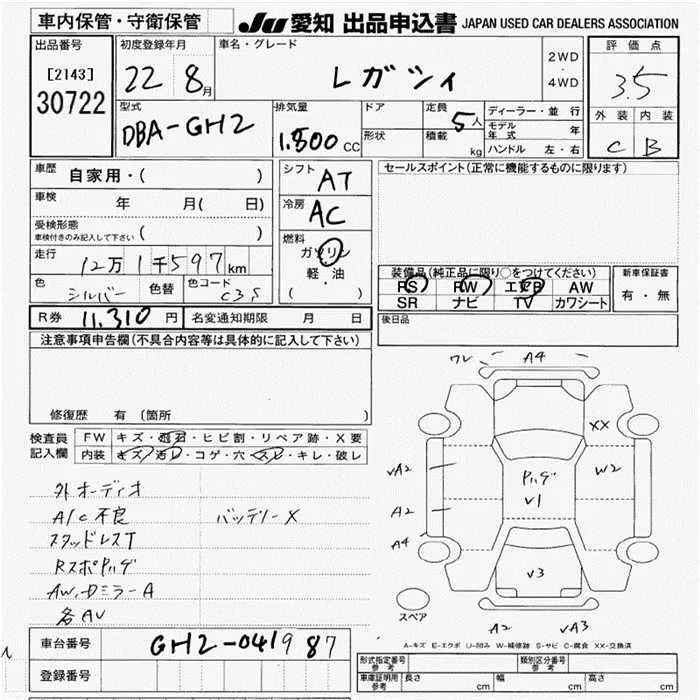 車内保管・守衛保管 JU 愛知 出品申込書 JAPAN USED CAR DEALERS ASSOCIATION
出品番号 初度登録年月 車名・グレード 評価点
[2143] 22 8月 レガシィ 2WD・4WD 3.5
30722 型式 排気量 ドア 定員 ディーラー・並行 外装 内装
DBA-GH2 1.500 CC 5人 モデル年式 年 C B
形状 積載 kg ハンドル 左・右
車歴 自家用・( ) シフト AT セールスポイント(正常に機能するものに限ります)
車検 年 月( 日) 冷房 AC
受検形態
車検付きのみ記入して下さい( ) 燃料 ガソリン
走行 12万1千597km 軽・油 装備品(純正品に限り○をつけてください) 新車保証書
色 シルバー 色替 色コード C35 ( ) PS PW エアB AW 有・無
SR ナビ TV カワシート
R券 11,310 円 名変通知期限 月 日 後日品
注意事項申告欄(不具合内容等は具体的に記入して下さい)
修復歴 有 〔箇所
検査員 FW キズ・飛石・ヒビ割・リペア跡・X要
記入欄 内装 キズ・汚レ・コゲ・穴・スレ・キレ・破レ
ワレ A4
XX
√A2 W2
Pハゲ
√1
A2
A4
√3
スペア
A2 √A3
外オーディオ
A/C不良 バッテリーX
スタッドレスT
RスポPハゲ
AW,DミラーA
各AV
A-キズ E-エクボ U-凹み W-補修跡 S-サビ C-腐食 XX-交換済
車台番号 GH2-041987
登録番号
形式指定番号 参考 類別区分番号 参考
車庫証明用 参考 長さ cm 幅 cm 高さ cm